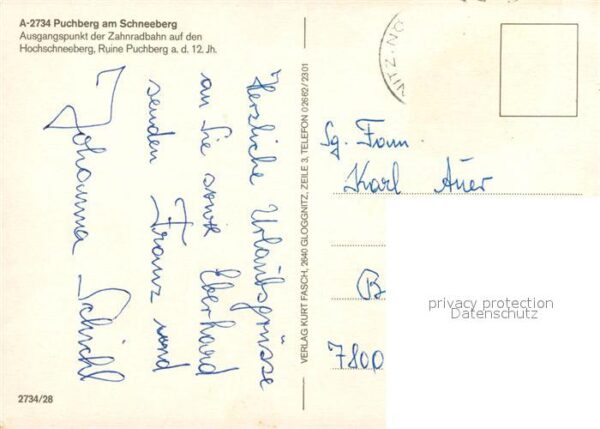 A-2734 Puchberg am Schneeberg
Ausgangspunkt der Zahnradbahn auf den
Hochschneeberg, Ruine Puchberg a. d. 12. Jh.
Herzliche Urlaubsgrüsse
an Sie sowie Eberhard
senden Franz und
Johanna Schickl
2734/28
VERLAG KURT FASCH, 2640 GLOGGNITZ, ZEILE 3, TELEFON 02662/2301
NITZ·NÖ
Sg. Fam.
Karl Auer
B
7800
privacy protection
Datenschutz